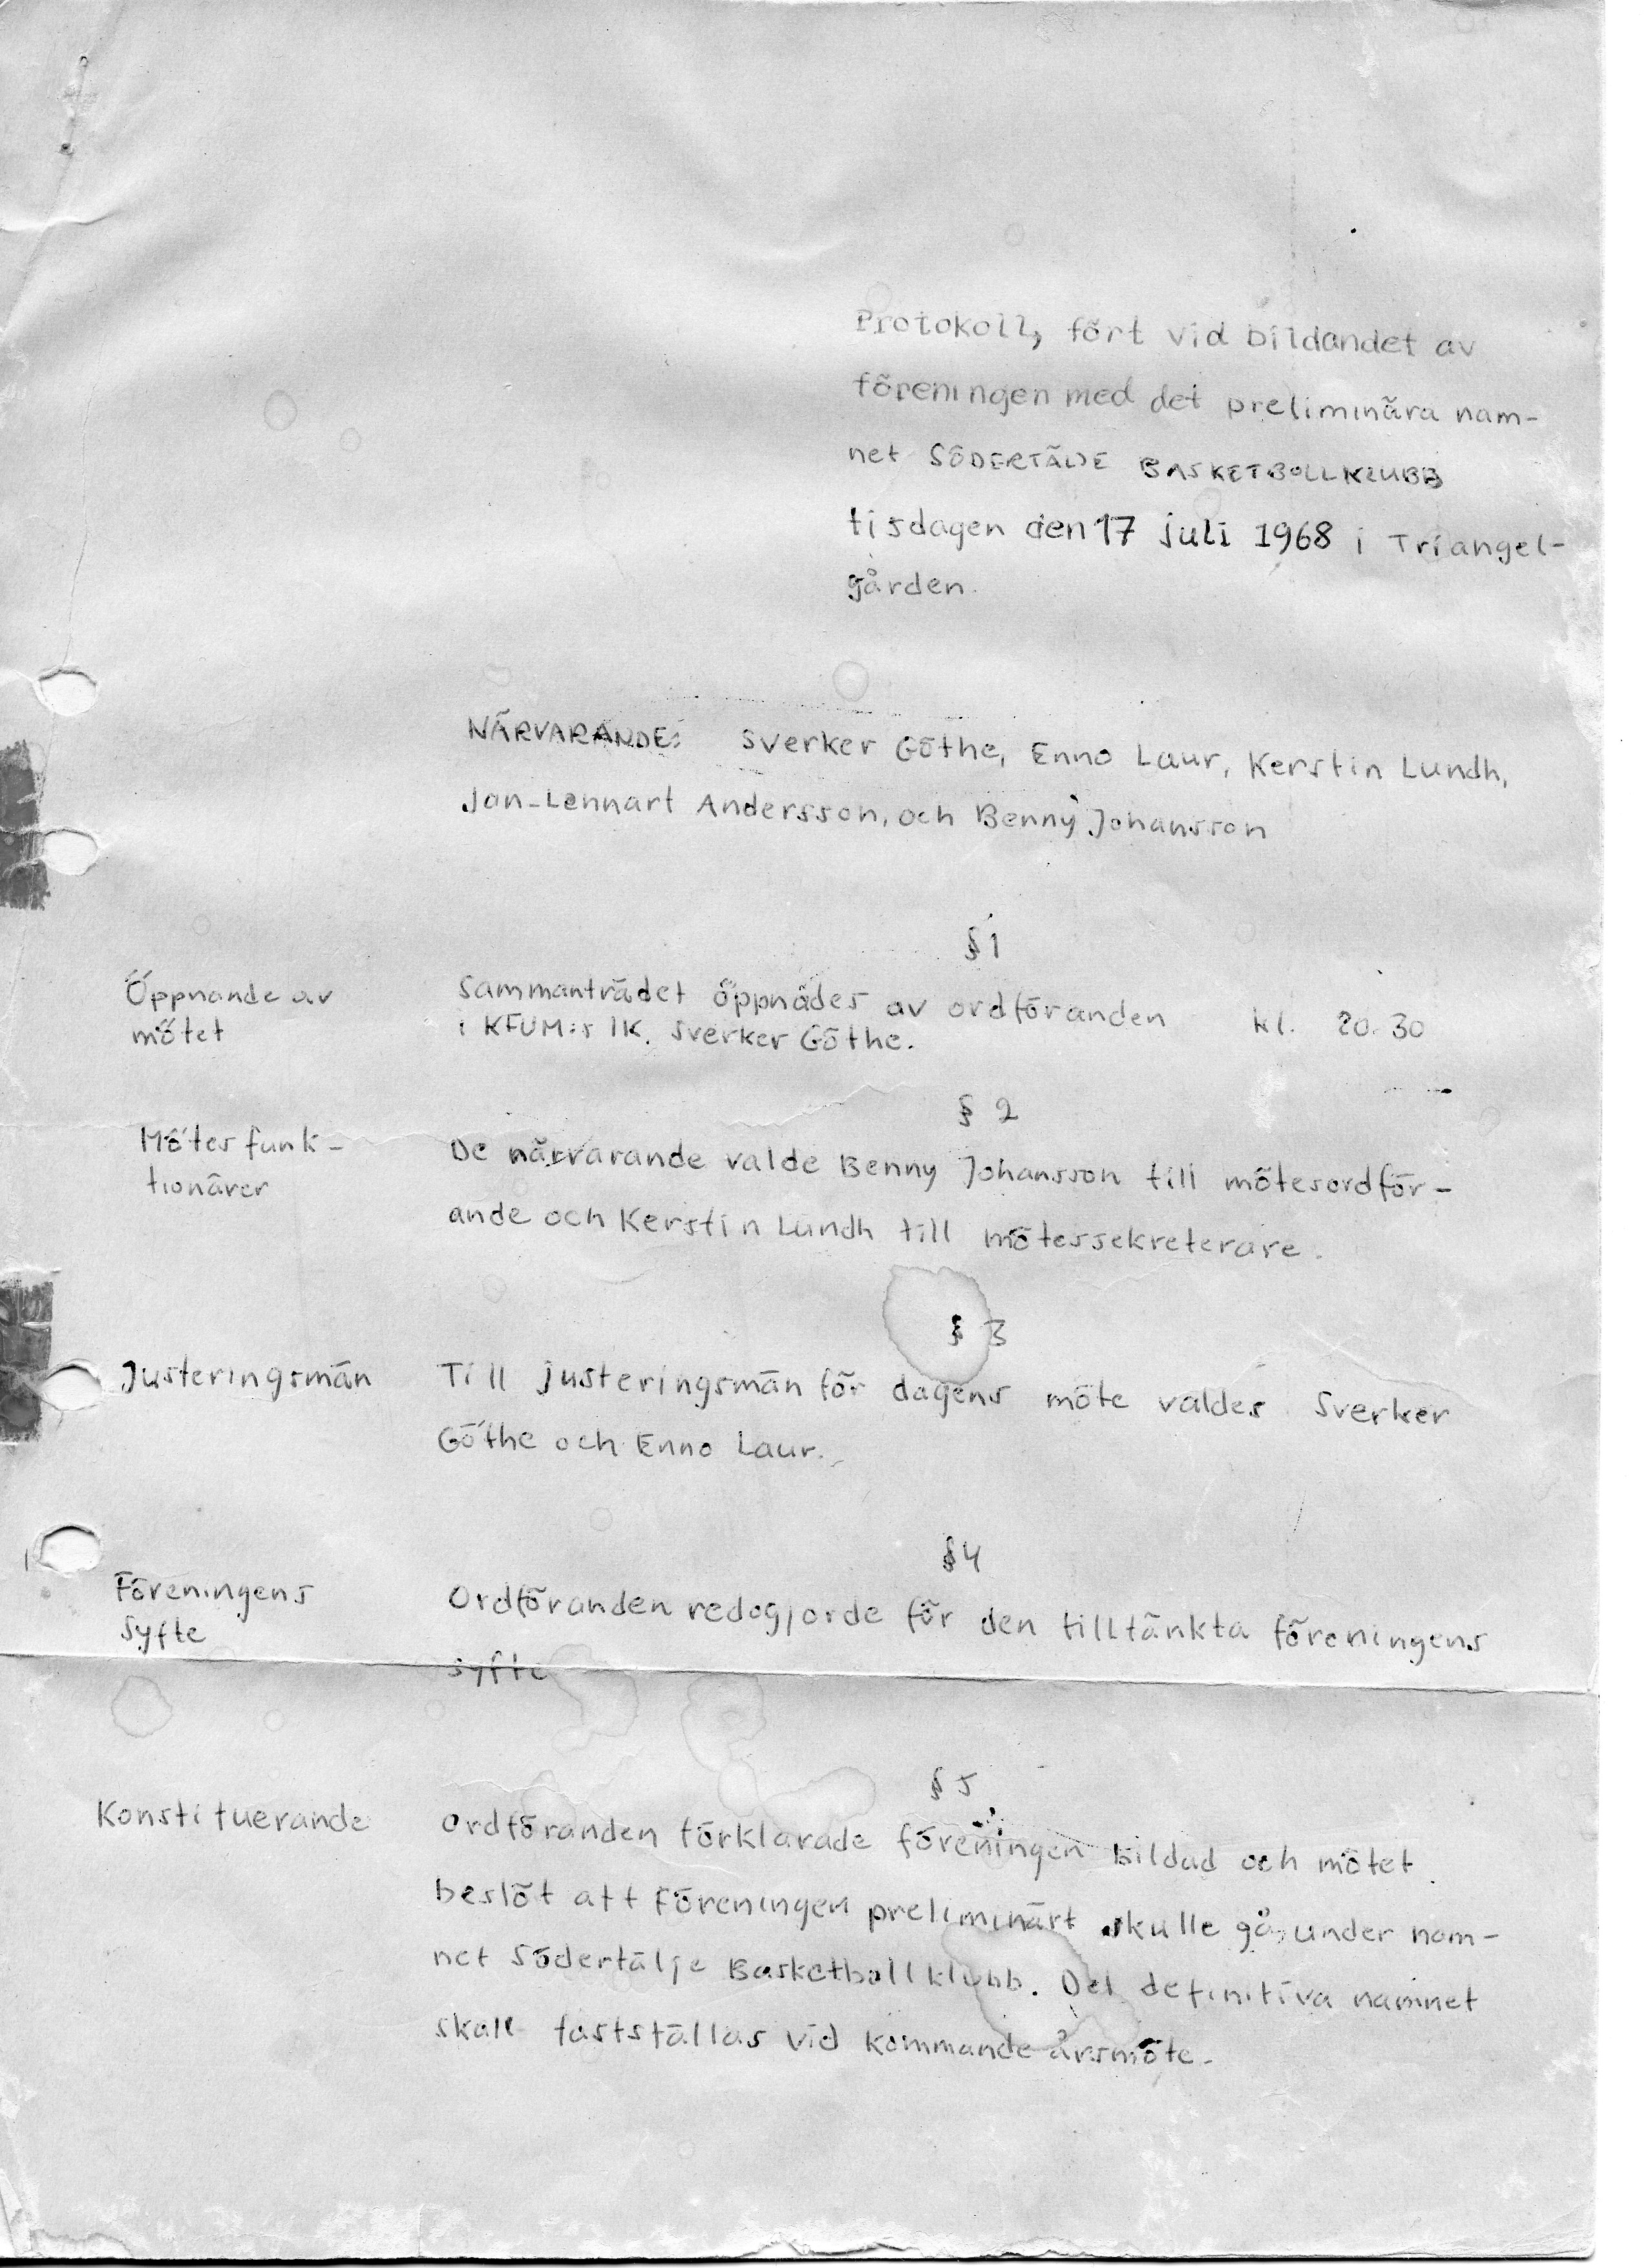 Protokoll, fört vid bildandet av
föreningen med det preliminära nam-
net SÖDERTÄLJE BASKETBOLLKLUBB
tisdagen den 17 juli 1968 i Triangel-
gården.
NÄRVARANDE: Sverker Göthe, Enno Laur, Kerstin Lundh,
Jan-Lennart Andersson, och Benny Johansson
§ 1
Öppnande av
mötet
Sammanträdet öppnades av ordföranden kl. 20.30
i KFUM:s IK. Sverker Göthe.
§ 2
Mötesfunk-
tionärer
De närvarande valde Benny Johansson till mötesordför-
ande och Kerstin Lundh till mötessekreterare.
§ 3
Justeringsmän
Till justeringsmän för dagens möte valdes Sverker
Göthe och Enno Laur.
§ 4
Föreningens
syfte
Ordföranden redogjorde för den tilltänkta föreningens
syfte
§ 5
Konstituerande
Ordföranden förklarade föreningen bildad och mötet
beslöt att föreningen preliminärt skulle gå under nam-
net Södertälje Basketbollklubb. Det definitiva namnet
skall fastställas vid kommande årsmöte.